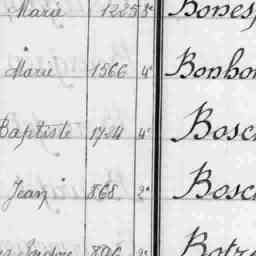 Marie 1225 3e Bones
Marie 1566 4e Bonho
Baptiste 1724 4e Bosc
Jean 868 2e Bosc
896 2e Botr